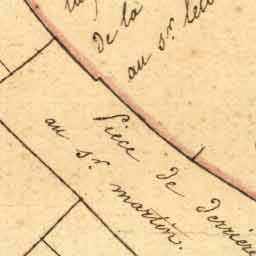 de la
au Sr.
Piece de derriere
au Sr. martin.